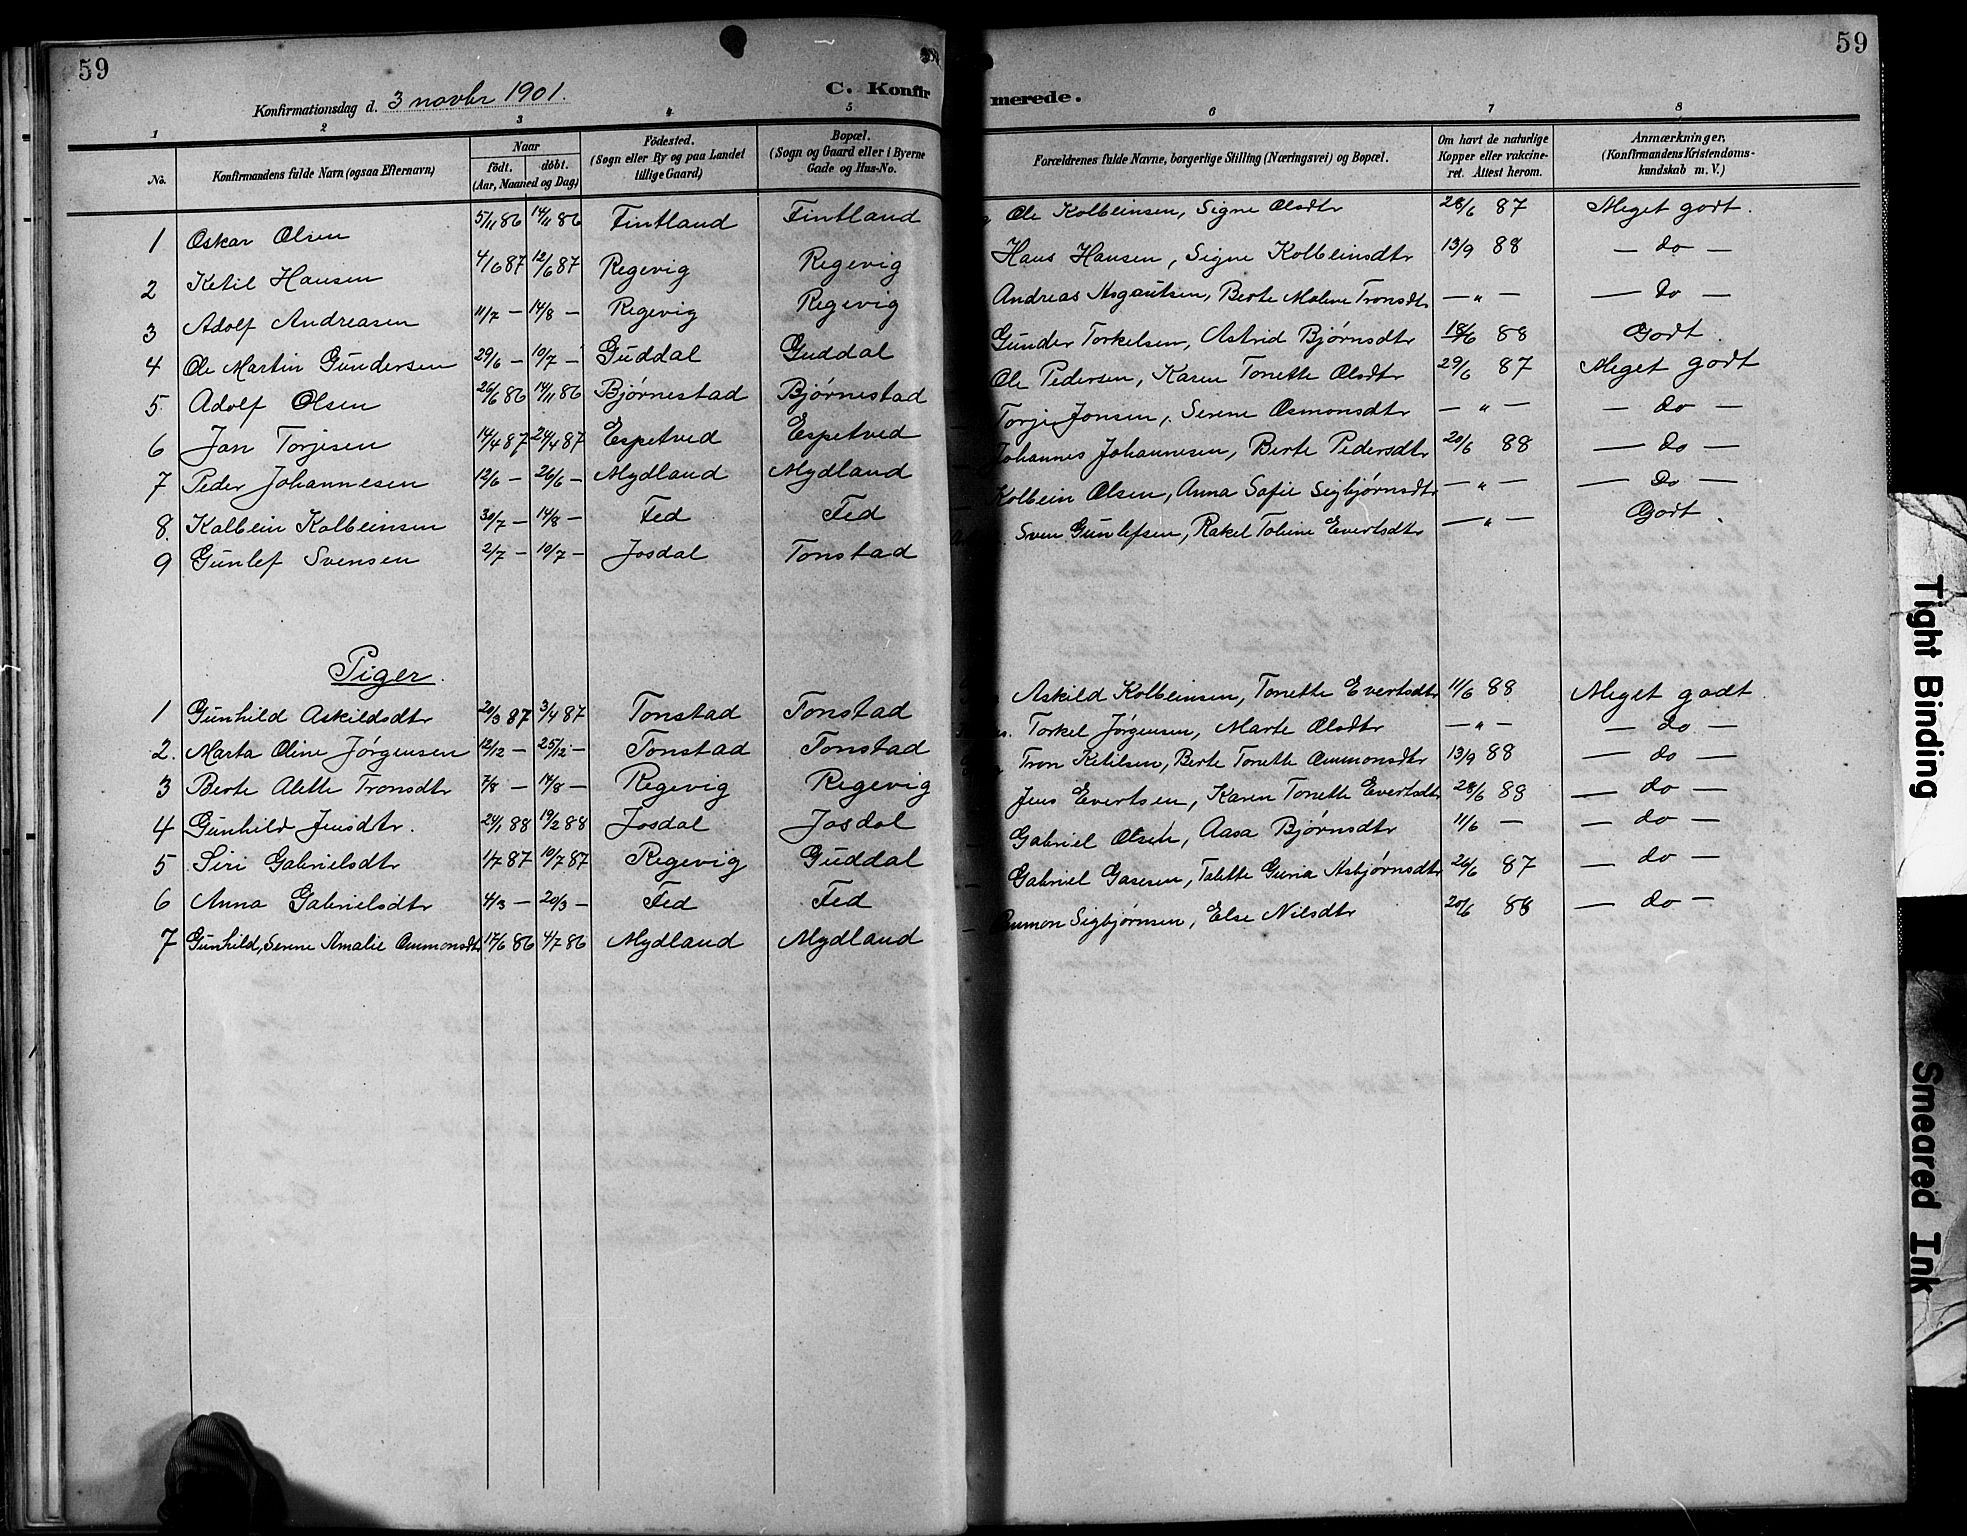 59
59
Konfirmationsdag d. 3 novbr 1901.
C. Konfirmerede.
1 2 3 4 5 6 7 8
No. Konfirmandens fulde Navn (ogsaa Efternavn) Naar født. døbt. (Aar, Maaned og Dag) Fødested. (Sogn eller By og paa Landet tillige Gaard) Bopæl. (Sogn og Gaard eller i Byerne Gade og Hus-No. Forældrenes fulde Navne, borgerlige Stilling (Næringsvei) og Bopæl. Om havt de naturlige Kopper eller vakcineret. Attest herom. Anmærkninger, (Konfirmandens Kristendomskundskab m. V.)
1 Oskar Olsen 5/11 86 14/11 86 Fintland Fintland Ole Kolbeinsen, Signe Olsdtr 28/6 87 Meget godt.
2 Ketil Hansen 4/6 87 12/6 87 Regevig Regevig Hans Hansen, Signe Kolbeinsdtr 13/9 88 — do —
3 Adolf Andreasen 11/7 — 14/8 — Regevig Regevig Andreas Asgautsen, Berte Malene Tronsdtr — " — — do —
4 Ole Martin Gundersen 29/6 — 10/7 — Guddal Guddal Gunder Torkelsen, Astrid Bjørnsdtr 18/6 88 Godt.
5. Adolf Olsen 26/6 86 14/11 86 Bjørnestad Bjørnestad Ole Pedersen, Karen Tonette Olsdtr 29/6 87 Meget godt
6 Jan Torjesen 14/4 87 24/4 87 Espetved Espetved Torje Jonsen, Serene Osmonsdtr — " — — do —
7 Peder Johannesen 12/6 — 26/6 — Mydland Mydland Johannes Johannesen, Berte Pedersdtr 20/6 88 — do —
8. Kolbein Kolbeinsen 30/7 — 14/8 — Fed Fed Kolbein Olsen, Anna Safie Sigbjørnsdtr — " — — do —
9 Gunlef Svensen 2/7 — 10/7 — Josdal Tonstad Sven Gunlefsen, Rakel Toline Evertsdtr — " — Godt.
Piger.
1 Gunhild Askildsdtr 20/3 87 3/4 87 Tonstad Tonstad Askild Kolbeinsen, Tonette Evertsdtr 11/6 88 Meget godt.
2. Marta Oline Jørgensen 12/12 — 25/12 — Tonstad Tonstad Torkel Jørgensen, Marte Olsdtr — " — — do —
3 Berte Alette Tronsdtr 7/8 — 14/8 — Regevig Regevig Tron Ketilsen, Berte Tonette Ommonsdtr 13/9 88 — do —
4 Gunhild Jensdtr. 24/1 88 19/2 88 Josdal Josdal Jens Evertsen, Karen Tonette Evertsdtr 28/6 88 — do —
5 Siri Gabrielsdtr 1/7 87 10/7 87 Regevig Guddal Gabriel Olsen, Aasa Bjørnsdtr 11/6 — — do —
6 Anna Gabrielsdtr 4/3 — 20/3 — Fed Fed Gabriel Gasesen, Talette Guria Asbjørnsdtr 26/6 87 — do —
7 Gunhild, Serene Amalie Ommonsdtr 17/6 86 4/7 86 Mydland Mydland Ommon Sigbjørnsen, Else Nilsdtr 20/6 88 — do —
Tight Binding
Smeared Ink